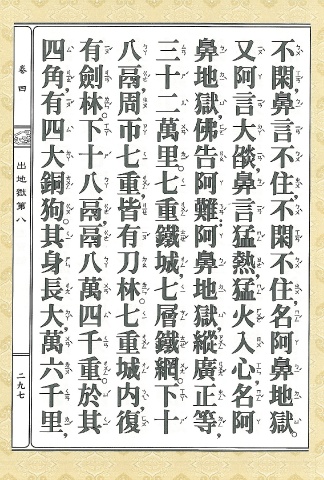 不閑。鼻言不住。不閑不住。名阿鼻地獄。
又阿言大燄。鼻言猛熱。猛火入心。名阿
鼻地獄。佛告阿難。阿鼻地獄。縱廣正等。
三十二萬里。七重鐵城。七層鐵網。下十
八鬲。周帀七重。皆有刀林。七重城內。復
有劍林。下十八鬲。鬲八萬四千重。於其
四角。有四大銅狗。其身長大。萬六千里。
卷四
出地獄第八
二九七